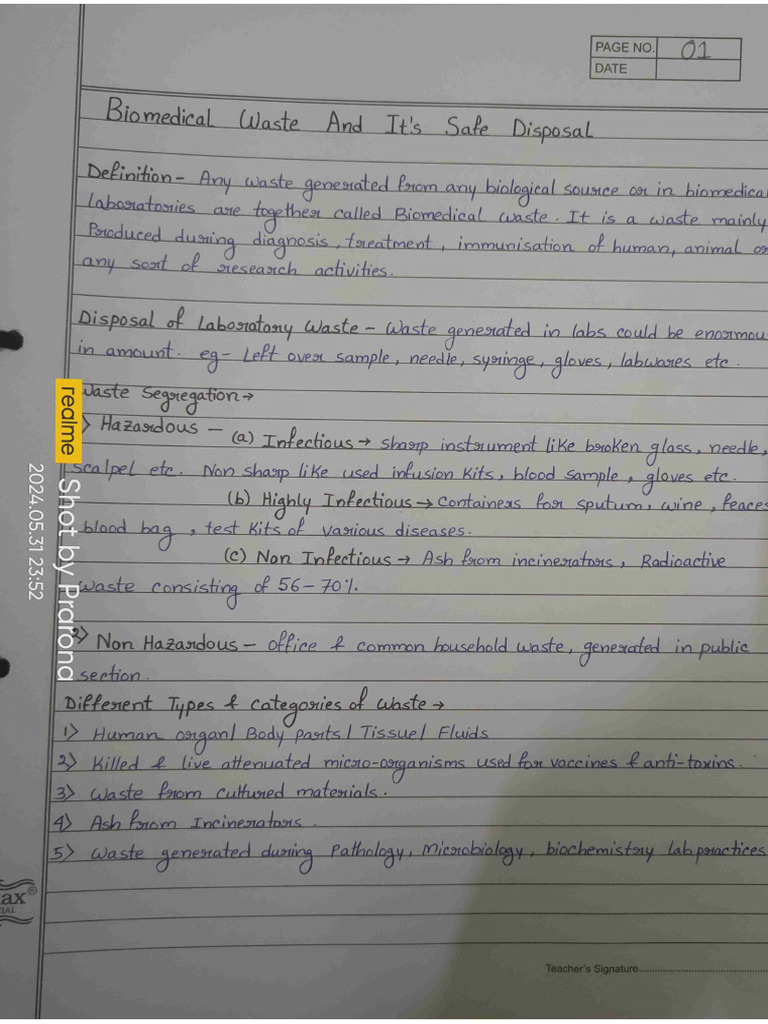 PAGE NO. 01
DATE
Biomedical Waste And It's Safe Disposal
Definition - Any waste generated from any biological source or in biomedical
Laboratories are together called Biomedical waste. It is a waste mainly
Produced during diagnosis, treatment, immunisation of human, animal or
any sort of research activities.
Disposal of Laboratory Waste - Waste generated in labs could be enormous
in amount. eg - Left over sample, needle, syringe, gloves, labwares etc.
Waste Segregation →
Hazardous - (a) Infectious → sharp instrument like broken glass, needle,
scalpel etc. Non sharp like used infusion kits, blood sample, gloves etc.
(b) Highly Infectious → containers for sputum, wine, feaces
blood bag, test kits of various diseases.
(c) Non Infectious → Ash from incinerators, Radioactive
waste consisting of 56-70%.
2) Non Hazardous - office & common household waste, generated in public
section.
Different Types & categories of waste →
1) Human organ/ Body parts/ Tissue/ Fluids
2) Killed & live attenuated micro-organisms used for vaccines & anti-toxins.
3) Waste from cultured materials.
4) Ash from Incinerators.
5) Waste generated during Pathology, Microbiology, biochemistry lab practices
Teacher's Signature
realme Shot by Prarona
2024.05.31 23:52